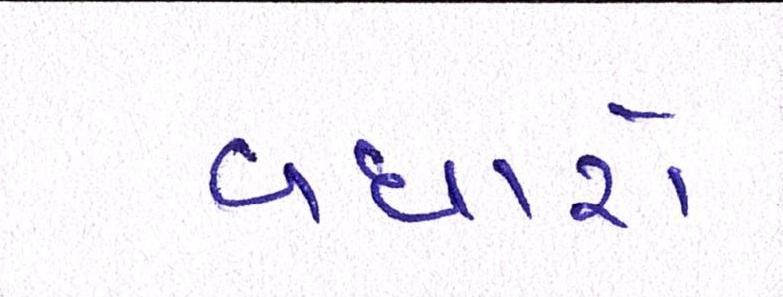 વધારો